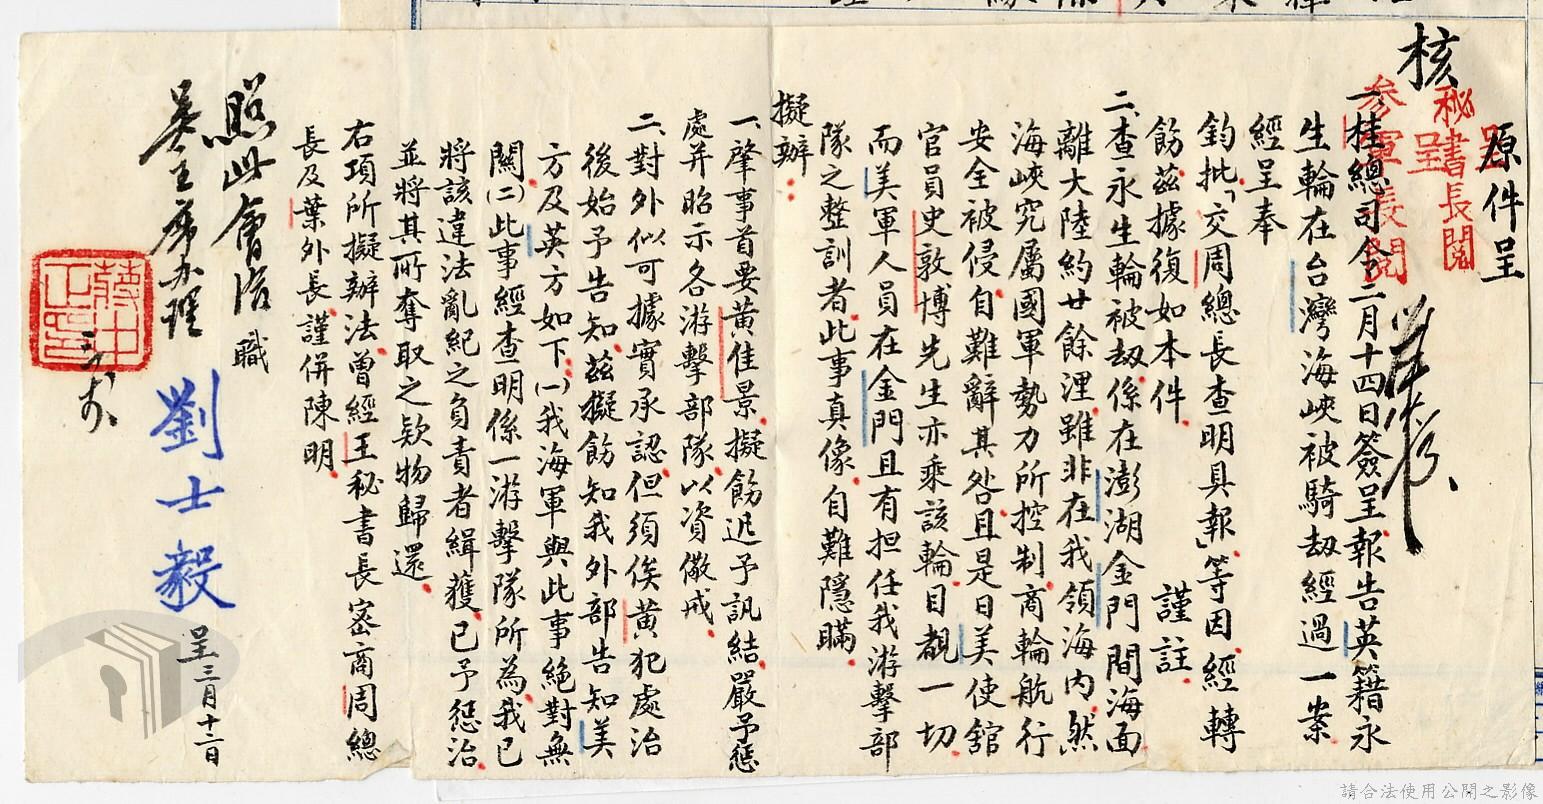 原件呈
核
秘書長閱
參軍長閱
呈
一、桂總司令二月十四日簽呈報告英籍永
生輪在台灣海峽被騎劫經過一案
經呈奉
鈞批「交周總長查明具報」等因經轉
飭茲據復如本件 謹註
二、查永生輪被劫係在澎湖金門間海面
離大陸約廿餘浬雖非在我領海內然
海峽究屬國軍勢力所控制商輪航行
安全被侵自難辭其咎且是日美使舘
官員史敦博先生亦乘該輪目覩一切
而美軍人員在金門且有担任我游擊部
隊之整訓者此事真像自難隱瞞
擬辦：
一、肇事首要黃佳景擬飭迅予訊結嚴予懲
處并昭示各游擊部隊以資儆戒
二、對外似可據實承認但須俟黃犯處治
後始予告知茲擬飭知我外部告知美
方及英方如下㈠我海軍與此事絕對無
關㈡此事經查明係一游擊隊所為我已
將該違法亂紀之負責者緝獲已予懲治
並將其所奪取之欵物歸還
右項所擬辦法曾經王秘書長密商周總
長及葉外長謹併陳明
職
劉士毅
呈三月十二日
照此會濬
吳主席办理
蔣中正印
請合法使用公開之影像